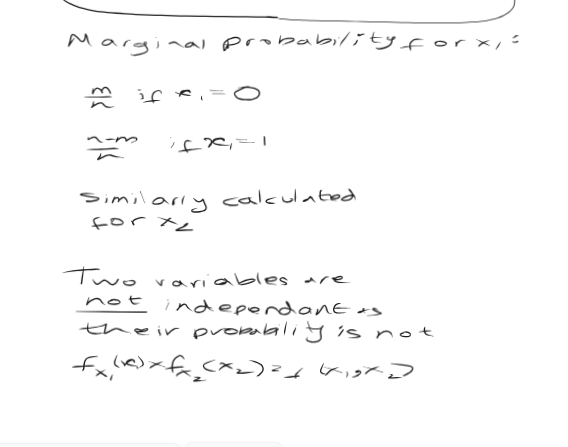 Marginal probability for x₁ =
m/n if x₁ = 0
n-m/n if x₁ = 1
Similarly calculated
for x₂
Two variables are
not independant as
their probability is not
fx₁(x₁) × fx₂(x₂) = f(x₁, x₂)